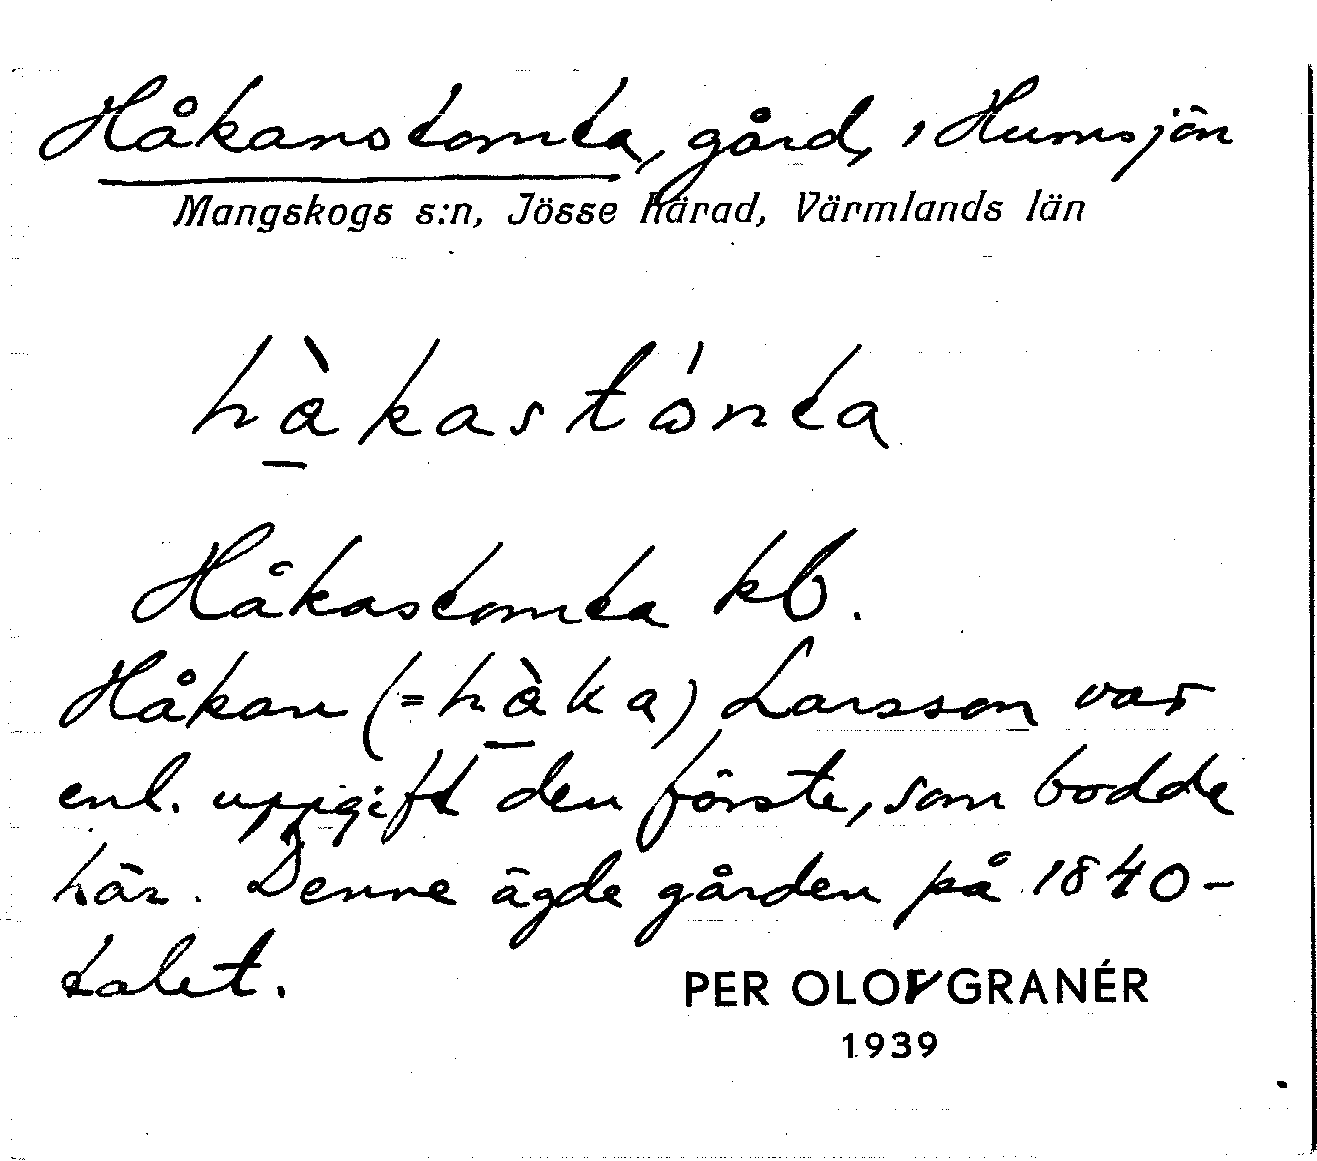 Håkanstomta, gård, i Humsjön
Mangskogs s:n, Jösse härad, Värmlands län
hàkastónta
Håkastomta kb.
Håkan (=hàka) Larsson var
enl. uppgift den förste, som bodde
här. Denne ägde gården på 1840-
talet.
PER OLOF GRANÉR
1939